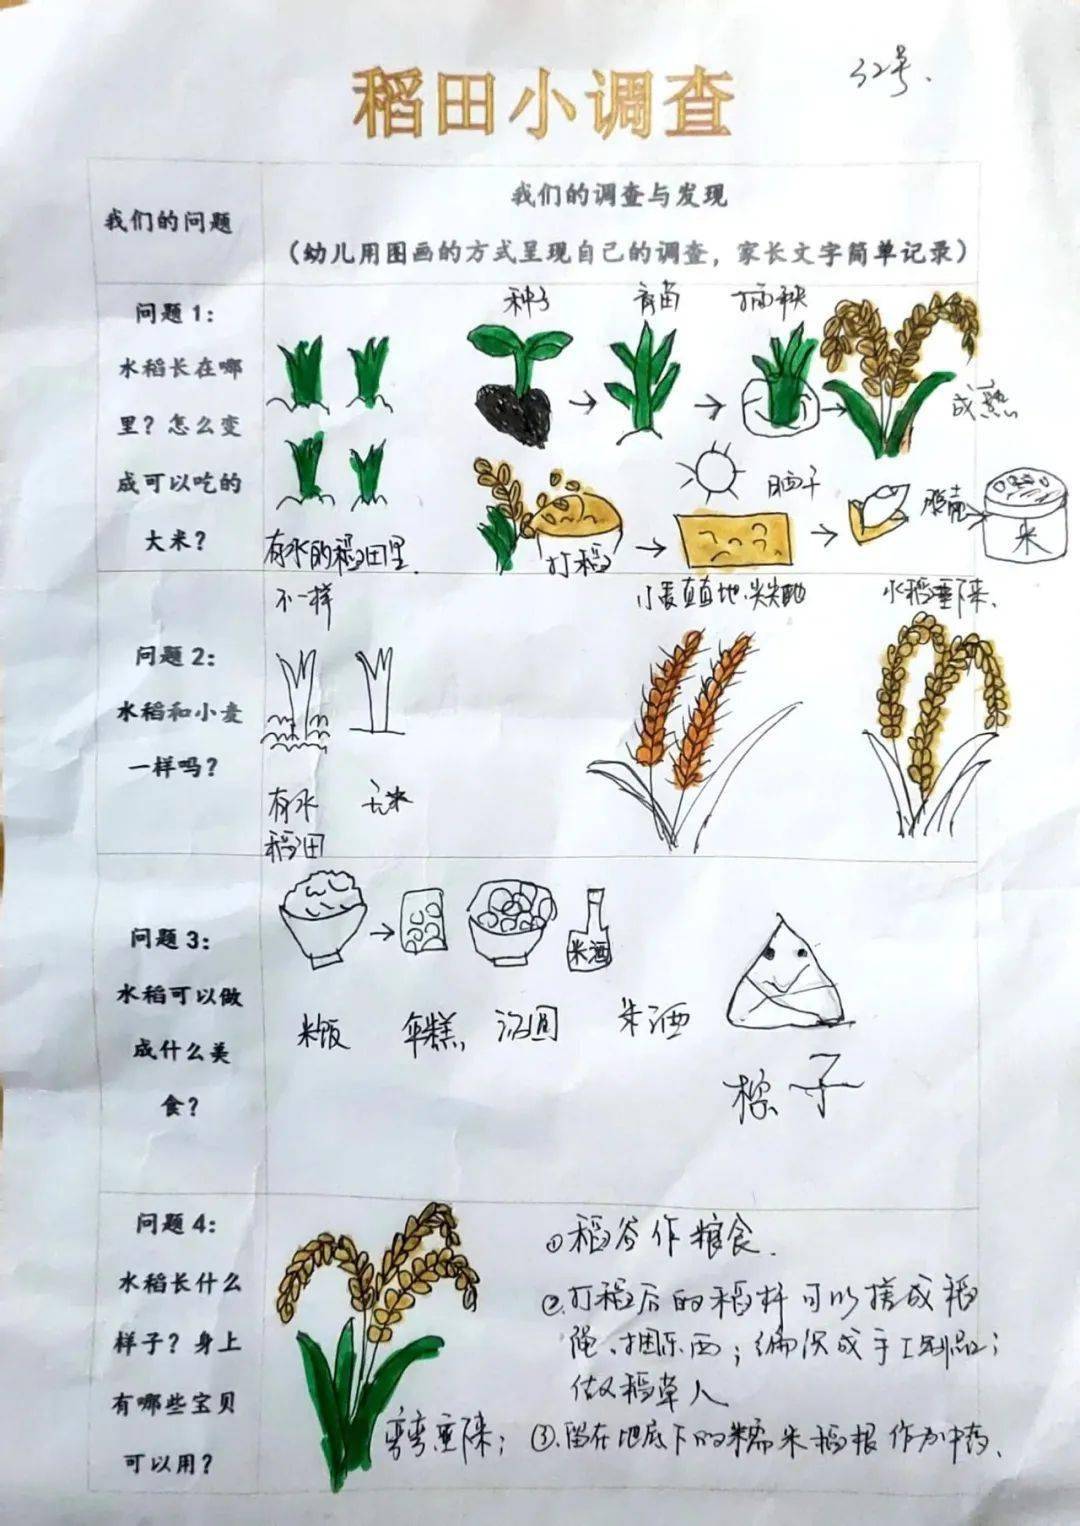 稻田小调查
32号.
我们的问题
我们的调查与发现
（幼儿用图画的方式呈现自己的调查，家长文字简单记录）
问题1：
水稻长在哪
里？怎么变
成可以吃的
大米？
种子
育苗
插秧
成熟
有水的稻田里.
打稻
晒干
脱壳
米
问题2：
水稻和小麦
一样吗？
不一样
有水
稻田
小麦直直地、尖尖地
水稻垂下来、
问题3：
水稻可以做
成什么美
食？
米酒
米饭
年糕,
汤圆
米酒
粽子
问题4：
水稻长什么
样子？身上
有哪些宝贝
可以用？
弯弯垂下来；
①稻谷作粮食.
②.打稻后的稻杆可以搓成稻
绳、捆东西；编织成手工制品；
做稻草人
③.留在地底下的糯米稻根作为中药、